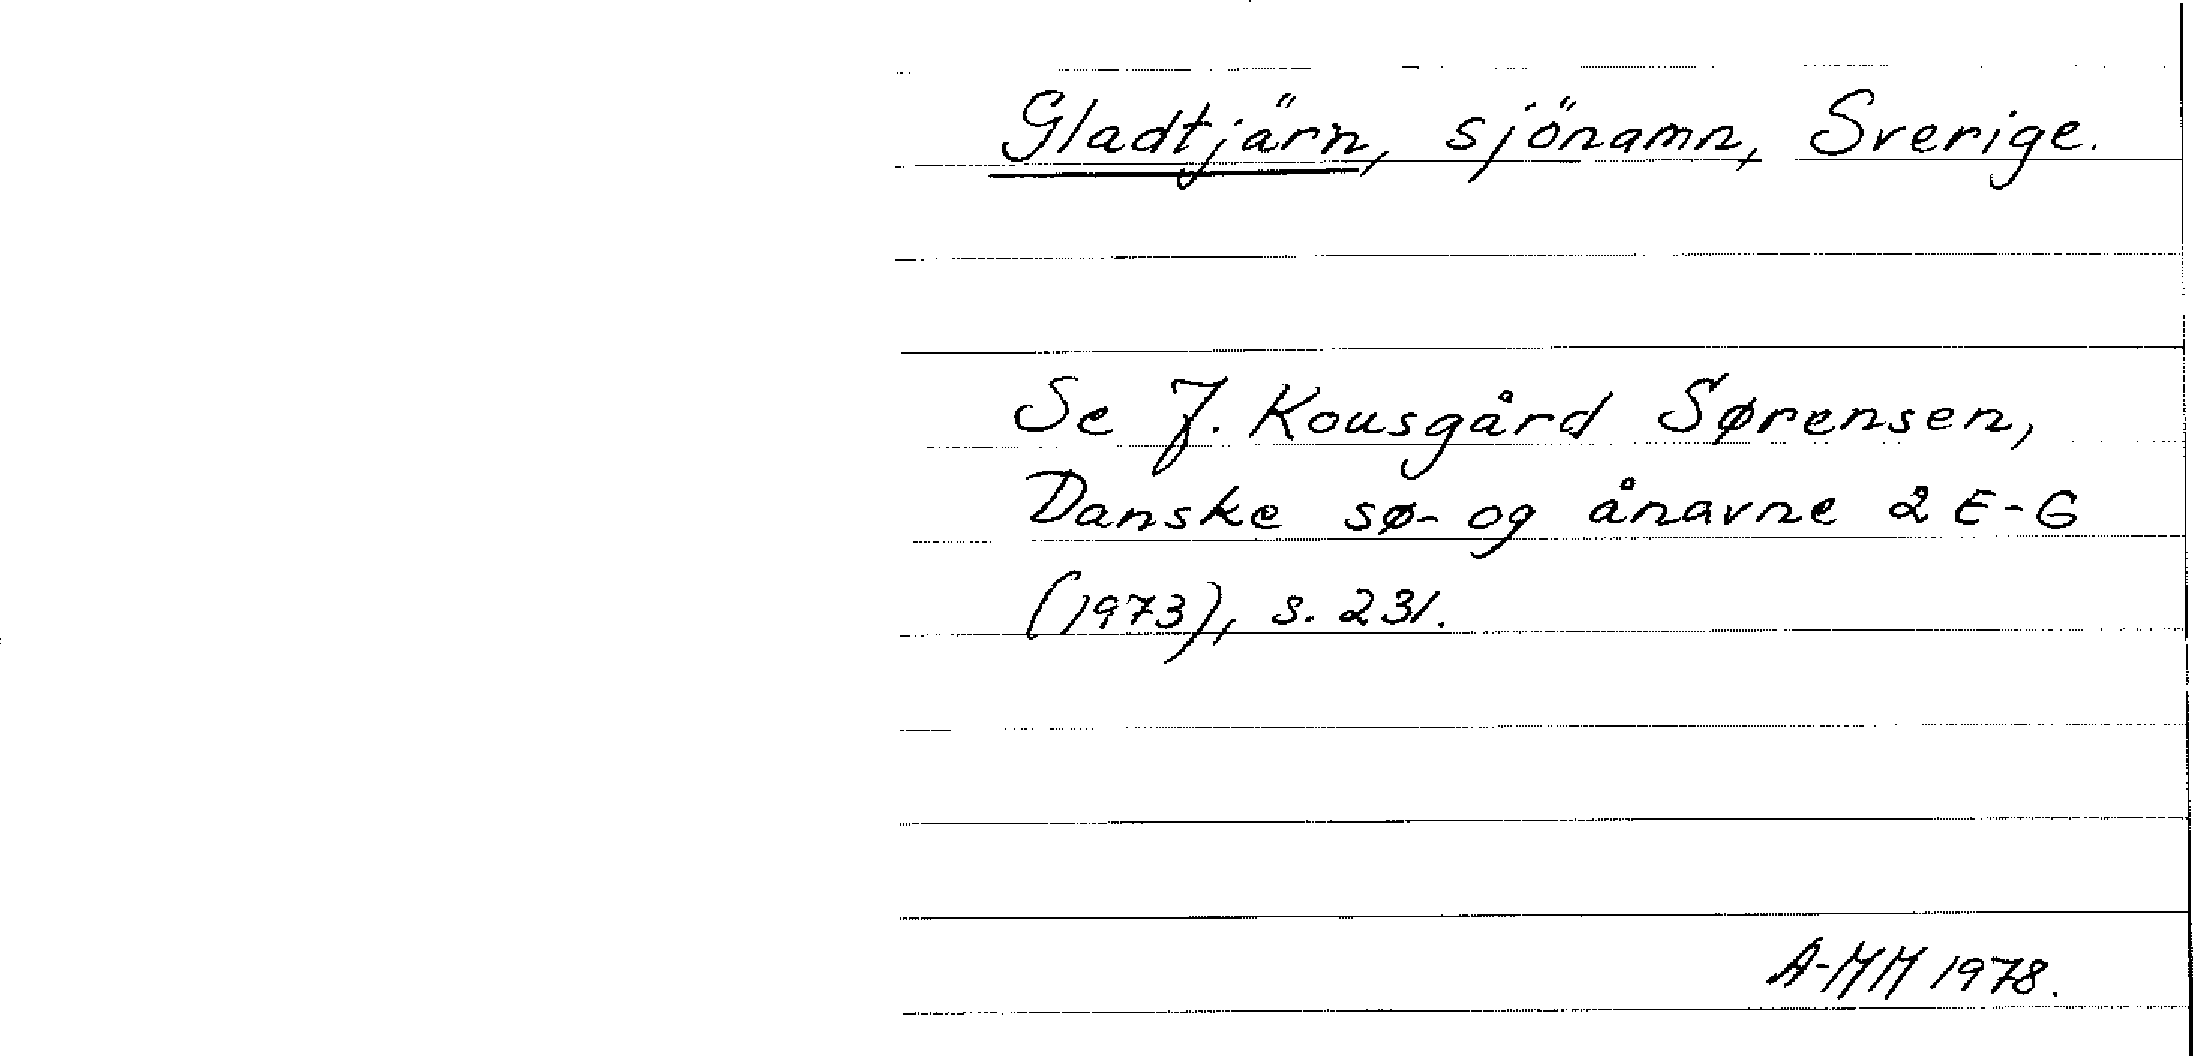 Gladtjärn, sjönamn, Sverige.
Se J. Kousgård Sørensen,
Danske sø- og ånavne 2 E-G
(1973), s. 231.
A-MM 1978.